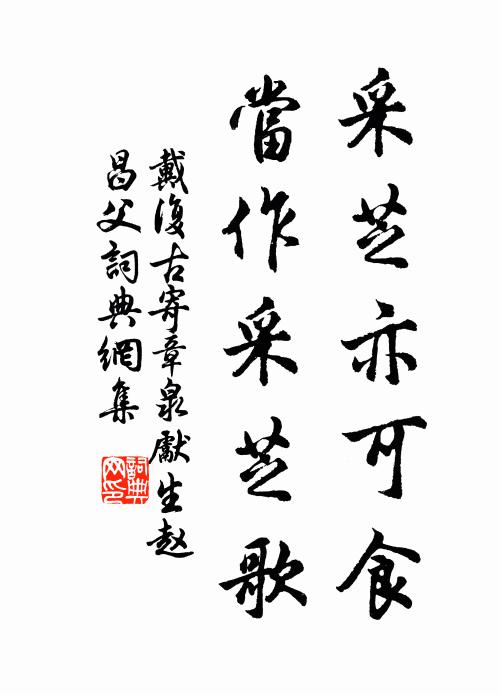 采芝亦可食
當作采芝歌
戴復古寄章泉獻生赵
昌父詞典網集
詞典
网印